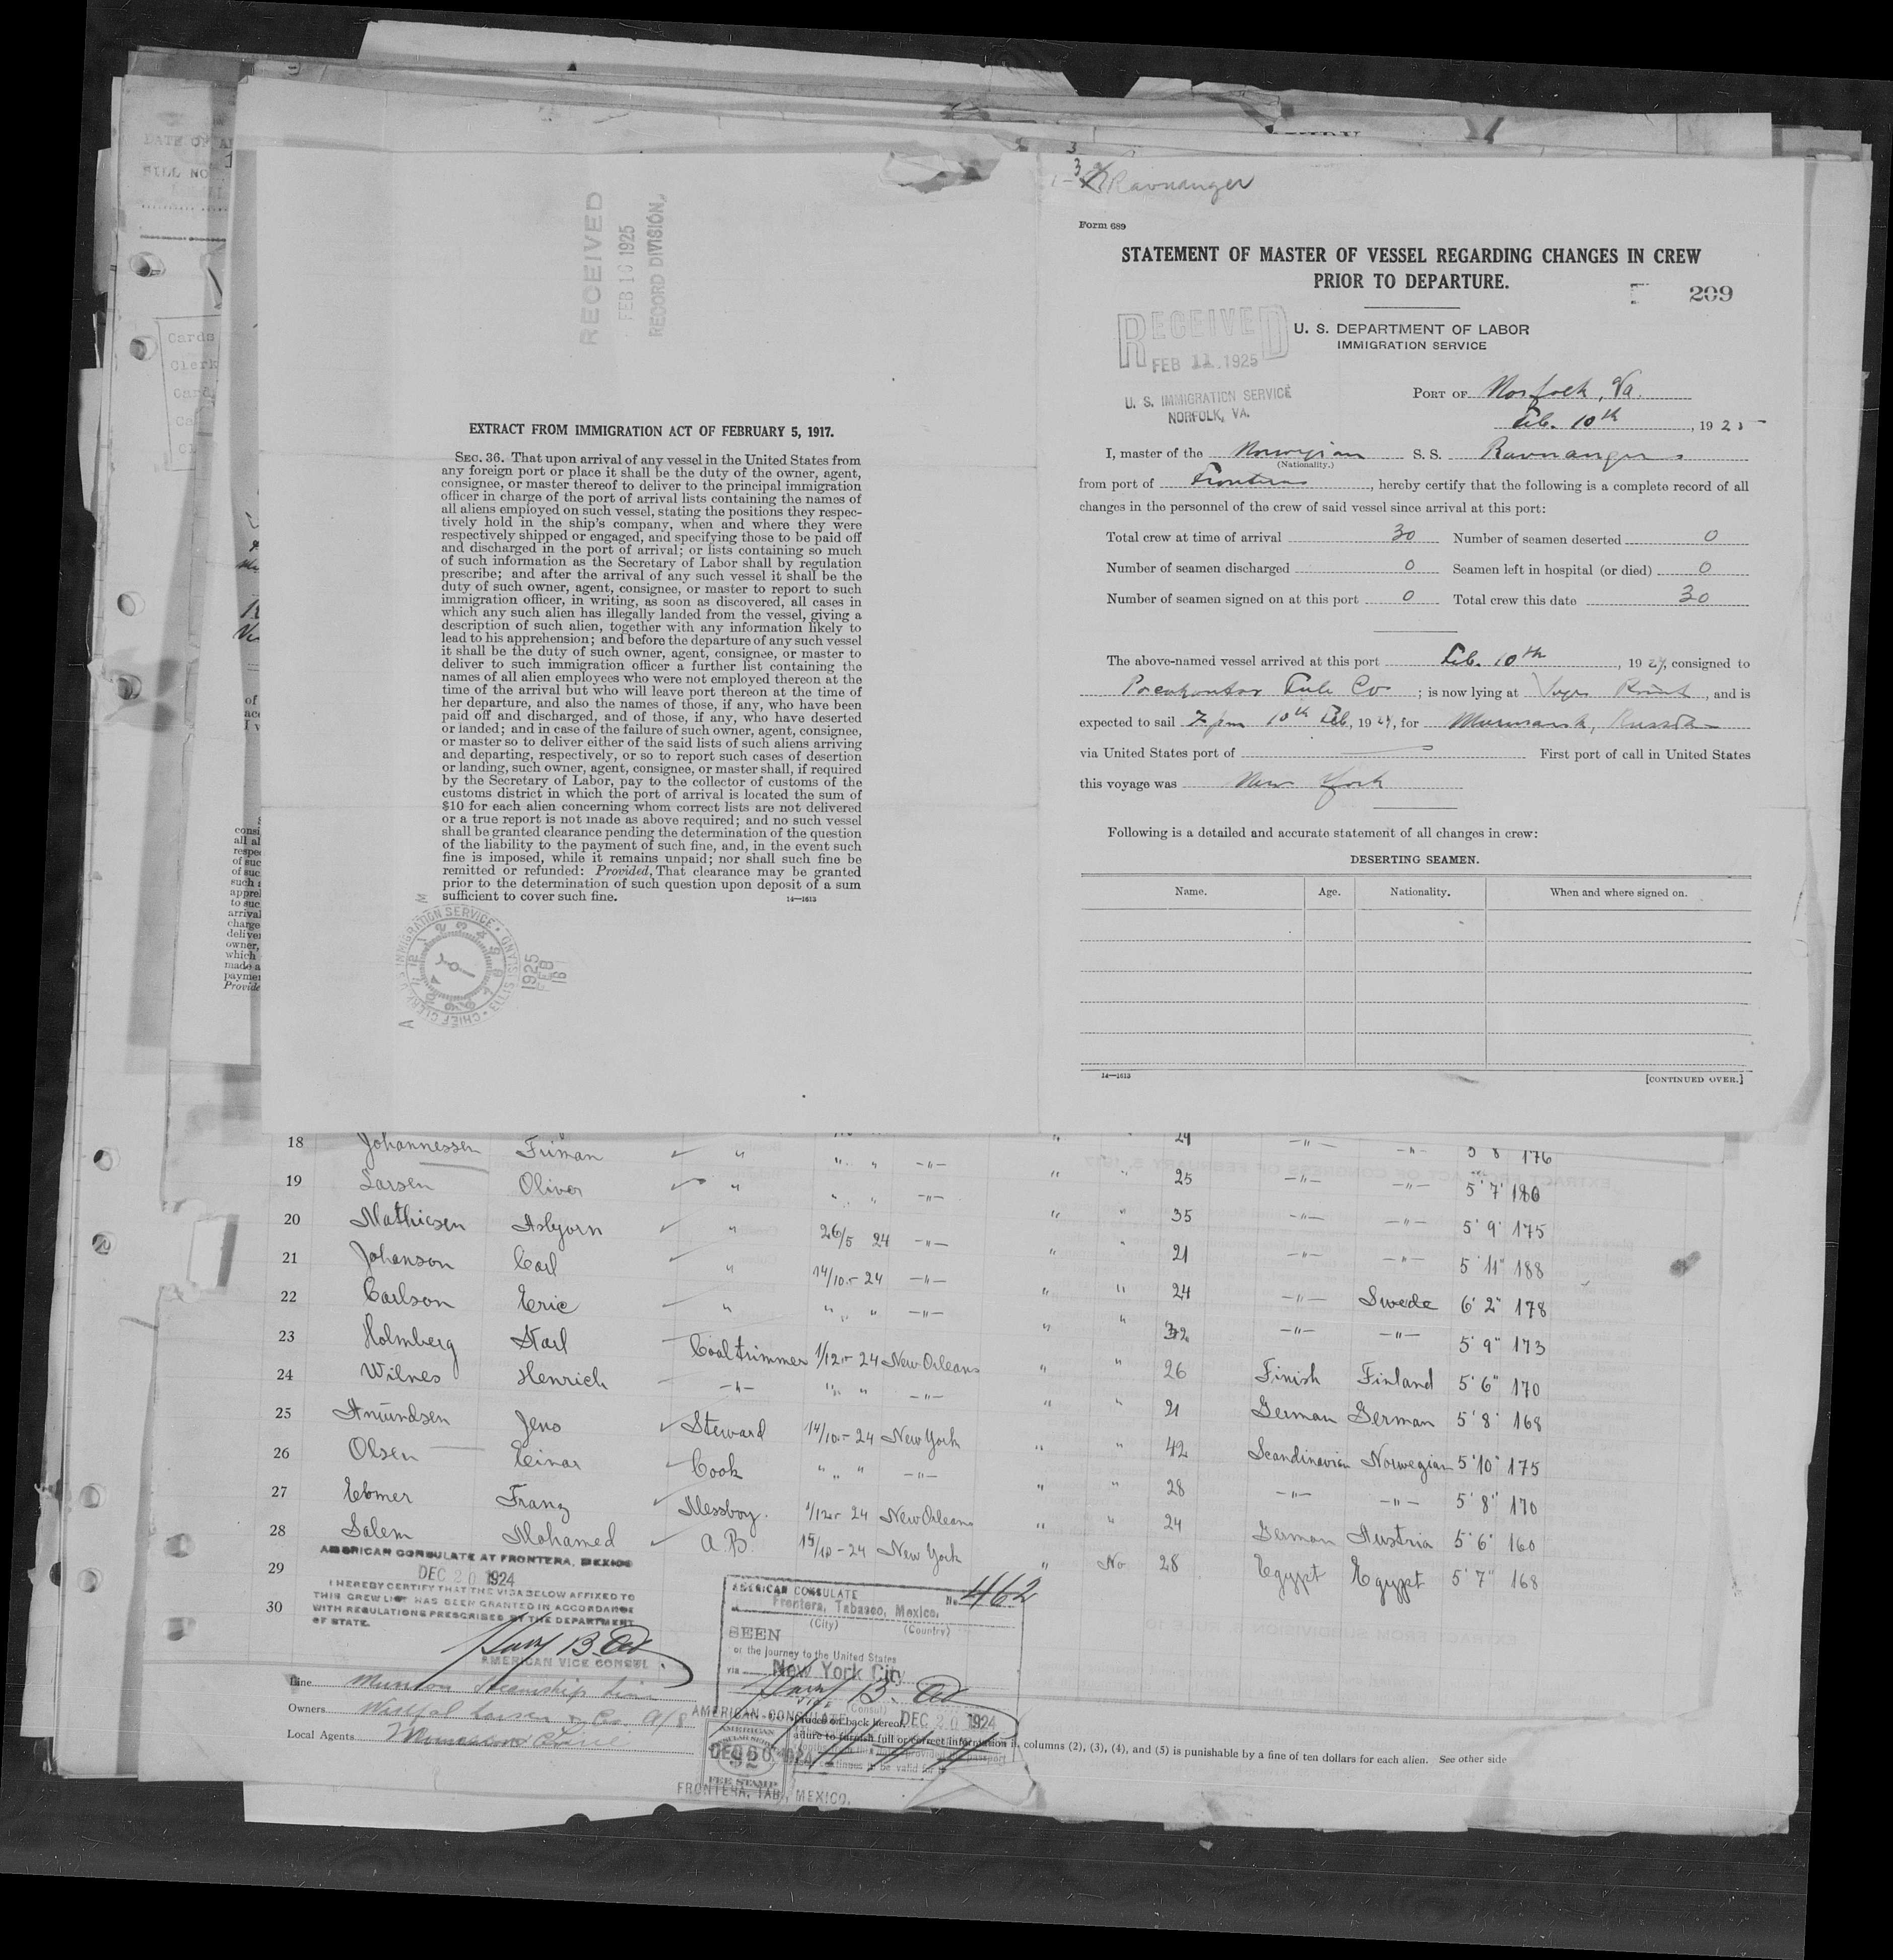 DATE OF A
BILL NO
Cards
Clerk
Card
RECEIVED
FEB 10 1925
RECORD DIVISION
EXTRACT FROM IMMIGRATION ACT OF FEBRUARY 5, 1917.
SEC. 36. That upon arrival of any vessel in the United States from
any foreign port or place it shall be the duty of the owner, agent,
consignee, or master thereof to deliver to the principal immigration
officer in charge of the port of arrival lists containing the names of
all aliens employed on such vessel, stating the positions they respec-
tively hold in the ship's company, when and where they were
respectively shipped or engaged, and specifying those to be paid off
and discharged in the port of arrival; or lists containing so much
of such information as the Secretary of Labor shall by regulation
prescribe; and after the arrival of any such vessel it shall be the
duty of such owner, agent, consignee, or master to report to such
immigration officer, in writing, as soon as discovered, all cases in
which any such alien has illegally landed from the vessel, giving a
description of such alien, together with any information likely to
lead to his apprehension; and before the departure of any such vessel
it shall be the duty of such owner, agent, consignee, or master to
deliver to such immigration officer a further list containing the
names of all alien employees who were not employed thereon at the
time of the arrival but who will leave port thereon at the time of
her departure, and also the names of those, if any, who have been
paid off and discharged, and of those, if any, who have deserted
or landed; and in case of the failure of such owner, agent, consignee,
or master so to deliver either of the said lists of such aliens arriving
and departing, respectively, or so to report such cases of desertion
or landing, such owner, agent, consignee, or master shall, if required
by the Secretary of Labor, pay to the collector of customs of the
customs district in which the port of arrival is located the sum of
$10 for each alien concerning whom correct lists are not delivered
or a true report is not made as above required; and no such vessel
shall be granted clearance pending the determination of the question
of the liability to the payment of such fine, and, in the event such
fine is imposed, while it remains unpaid; nor shall such fine be
remitted or refunded: Provided, That clearance may be granted
prior to the determination of such question upon deposit of a sum
sufficient to cover such fine. 14—1613
IMMIGRATION SERVICE ELLIS ISLAND CHIEF CLERK
1925 FEB 16
Ravnanger
Form 689
STATEMENT OF MASTER OF VESSEL REGARDING CHANGES IN CREW
PRIOR TO DEPARTURE.
209
RECEIVED
FEB 11 1925
U. S. IMMIGRATION SERVICE
NORFOLK, VA.
U. S. DEPARTMENT OF LABOR
IMMIGRATION SERVICE
PORT OF Norfolk, Va.
Feb. 10th, 1925
I, master of the Norwegian S. S. Ravnanger
(Nationality.)
from port of Frontera, hereby certify that the following is a complete record of all
changes in the personnel of the crew of said vessel since arrival at this port:
Total crew at time of arrival 30 Number of seamen deserted 0
Number of seamen discharged 0 Seamen left in hospital (or died) 0
Number of seamen signed on at this port 0 Total crew this date 30
The above-named vessel arrived at this port Feb. 10th, 19 consigned to
Pocahontas Fule Co; is now lying at Point, and is
expected to sail 7 pm 10th Feb, 19 for Murmansk, Russia
via United States port of First port of call in United States
this voyage was New York
Following is a detailed and accurate statement of all changes in crew:
DESERTING SEAMEN.
Name. Age. Nationality. When and where signed on.
14—1613 [CONTINUED OVER.]
18 Johannessen Friman " " " —"— " " 24 —"— —"— 5 8 176
19 Larsen Oliver " " " —"— " " 25 —"— —"— 5' 7" 180
20 Mathiesen Asbjorn " 26/5 24 —"— " " 35 —"— —"— 5' 9" 175
21 Johanson Carl " 14/10 - 24 —"— " " 21 —"— —"— 5' 11" 188
22 Carlson Eric " " " —"— " " 24 —"— Swede 6' 2" 178
23 Holmberg Karl Coaltrimmer 1/12 - 24 New Orleans " " 32 —"— —"— 5' 9" 173
24 Wilnes Henrich —"— " " —"— " " 26 Finish Finland 5' 6" 170
25 Amundsen Jens Steward 14/10 - 24 New York " " 21 German German 5' 8" 168
26 Olsen Einar Cook " " —"— " " 42 Scandinavian Norwegian 5' 10" 175
27 Ebmer Franz Messboy. 1/12 - 24 New Orleans " " 28 —"— —"— 5' 8" 170
28 Salem Mohamed A.B. 15/10 - 24 New York " " 24 German Austria 5' 6" 160
29 " No 28 Egypt Egypt 5' 7" 168
30
AMERICAN CONSULATE AT FRONTERA, MEXICO
DEC 20 1924
I HEREBY CERTIFY THAT THE VISA BELOW AFFIXED TO
THIS CREW LIST HAS BEEN GRANTED IN ACCORDANCE
WITH REGULATIONS PRESCRIBED BY THE DEPARTMENT
OF STATE.
AMERICAN VICE CONSUL
AMERICAN CONSULATE
Frontera, Tabasco, Mexico. No 462
(City) (Country)
SEEN
or the journey to the United States
via New York City
(Consul)
DEC 20 1924
Line Munson Steamship Line
Owners Westfal Larsen & Co. A/S
Local Agents Munson Line
AMERICAN CONSULATE
AMERICAN
FEE STAMP
DEC 20 1924
FRONTERA, TAB., MEXICO.
on back hereof.
ailure to furnish full or correct information in columns (2), (3), (4), and (5) is punishable by a fine of ten dollars for each alien. See other side